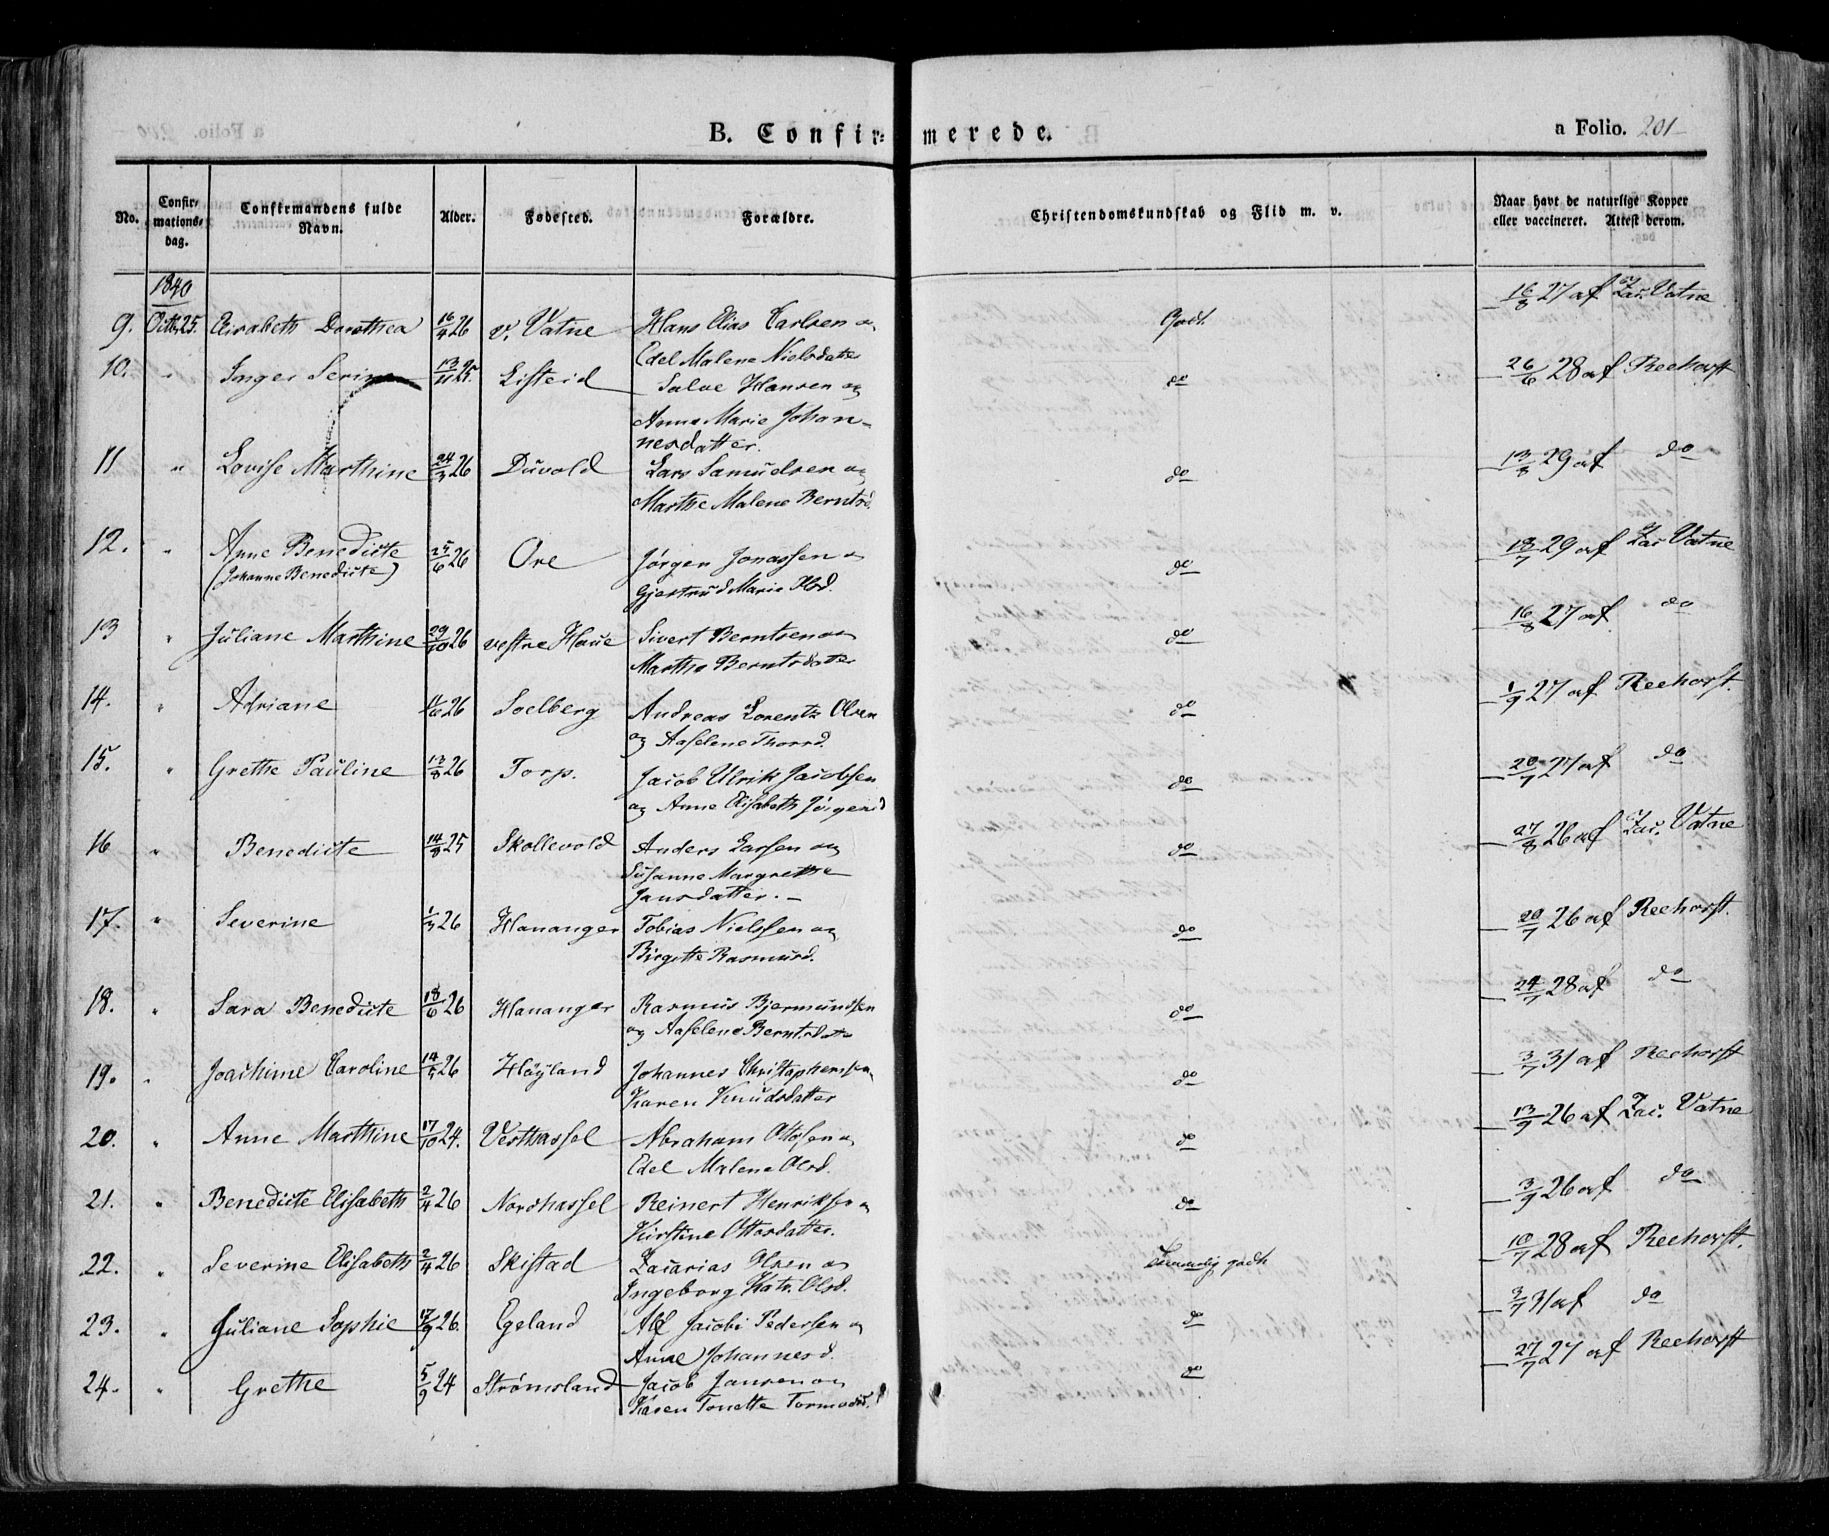 B. Confir= merede. a Folio. 201
No. Confir=mations=dag. Confirmandens fulde Navn. Alder. Fødested. Forældre. Christendomskundskab og Flid m. v. Naar havt de naturlige Kopper eller vaccineret. Attest derom.
1840
9. Octbr 25. Elisabeth Dorothea 16/4 26 v. Vatne Hans Elias Carlsen og Godt 16/8 27 af Zac. Vatne
Edel Malene Nielsdatter
10. " Inger Serine 13/11 25. Listeid Salve Hansen og do 26/6 28 af Reehorst
Anna Marie Johan-
nesdatter.
11 " Lovise Marthine 24/3 26 Duvold Lars Samuelsen og do 13/8 29 af do
Marthe Malene Berntsd.
12. " Anne Benedicte 25/6 26 Ore Jørgen Jonassen og do 13/7 29 af Zac Vatne
(Johanne Benedicte) Gjertrud Marie Olsd.
13 " Juliane Marthine 29/10 26 vestre Haue Sivert Berntsen og do 16/8 27 af do
Marthe Berntsdatter
14. " Adriane 11/6 26 Soelberg Andreas Lorentz Olsen do 1/9 27 af Reehorst.
og Aaselene Thorsd.
15. " Grethe Pauline 13/8 26 Torp. Jacob Ulrik Jacobsen do 20/7 27 af do
og Anne Elisabeth Jørgensd
16 " Benedicte 14/8 25 Skollevold Anders Larsen og do 27/8 26 af Zac. Vatne
Susanne Margrethe
Jansdatter. -
17. " Severine 1/3 26 Hananger Tobias Nielssen og do 20/7 26 af Reehorst.
Birgitte Rasmusd.
18. " Sara Benedicte 18/6 26 Hananger Rasmus Bjermundsen do 24/7 28 af do
og Aaselene Berntsdatter
19. " Joachime Caroline 14/5 26 Høyland Johannes Christophersen do 3/7 31 af Reehorst
Karen Knudsdatter
20. " Anne Marthine 17/10 24. Vesthassel Abraham Ottosen og do 13/9 26 af Zac. Vatne
Edel Malene Olsd.
21. " Benedicte Elisabeth 2/4 26 Nordhassel Reinert Henriksen og do 3/9 26 af do
Kirstine Ottosdatter.
22. " Severine Elisabeth 2/4 26 Skistad Zacarias Olsen og Temmelig godt 10/7 28 af Reehorst.
Ingeborg Katr. Olsd.
23. " Juliane Sophie 17/9 26. Egeland Alf Jacobi Pedersen og do 3/7 31 af do
Anne Johannesd.
24. " Grethe 5/9 24 Strømsland Jacob Jansen og do 27/7 27 af Reehorst
Karen Tonette Tormodsd.